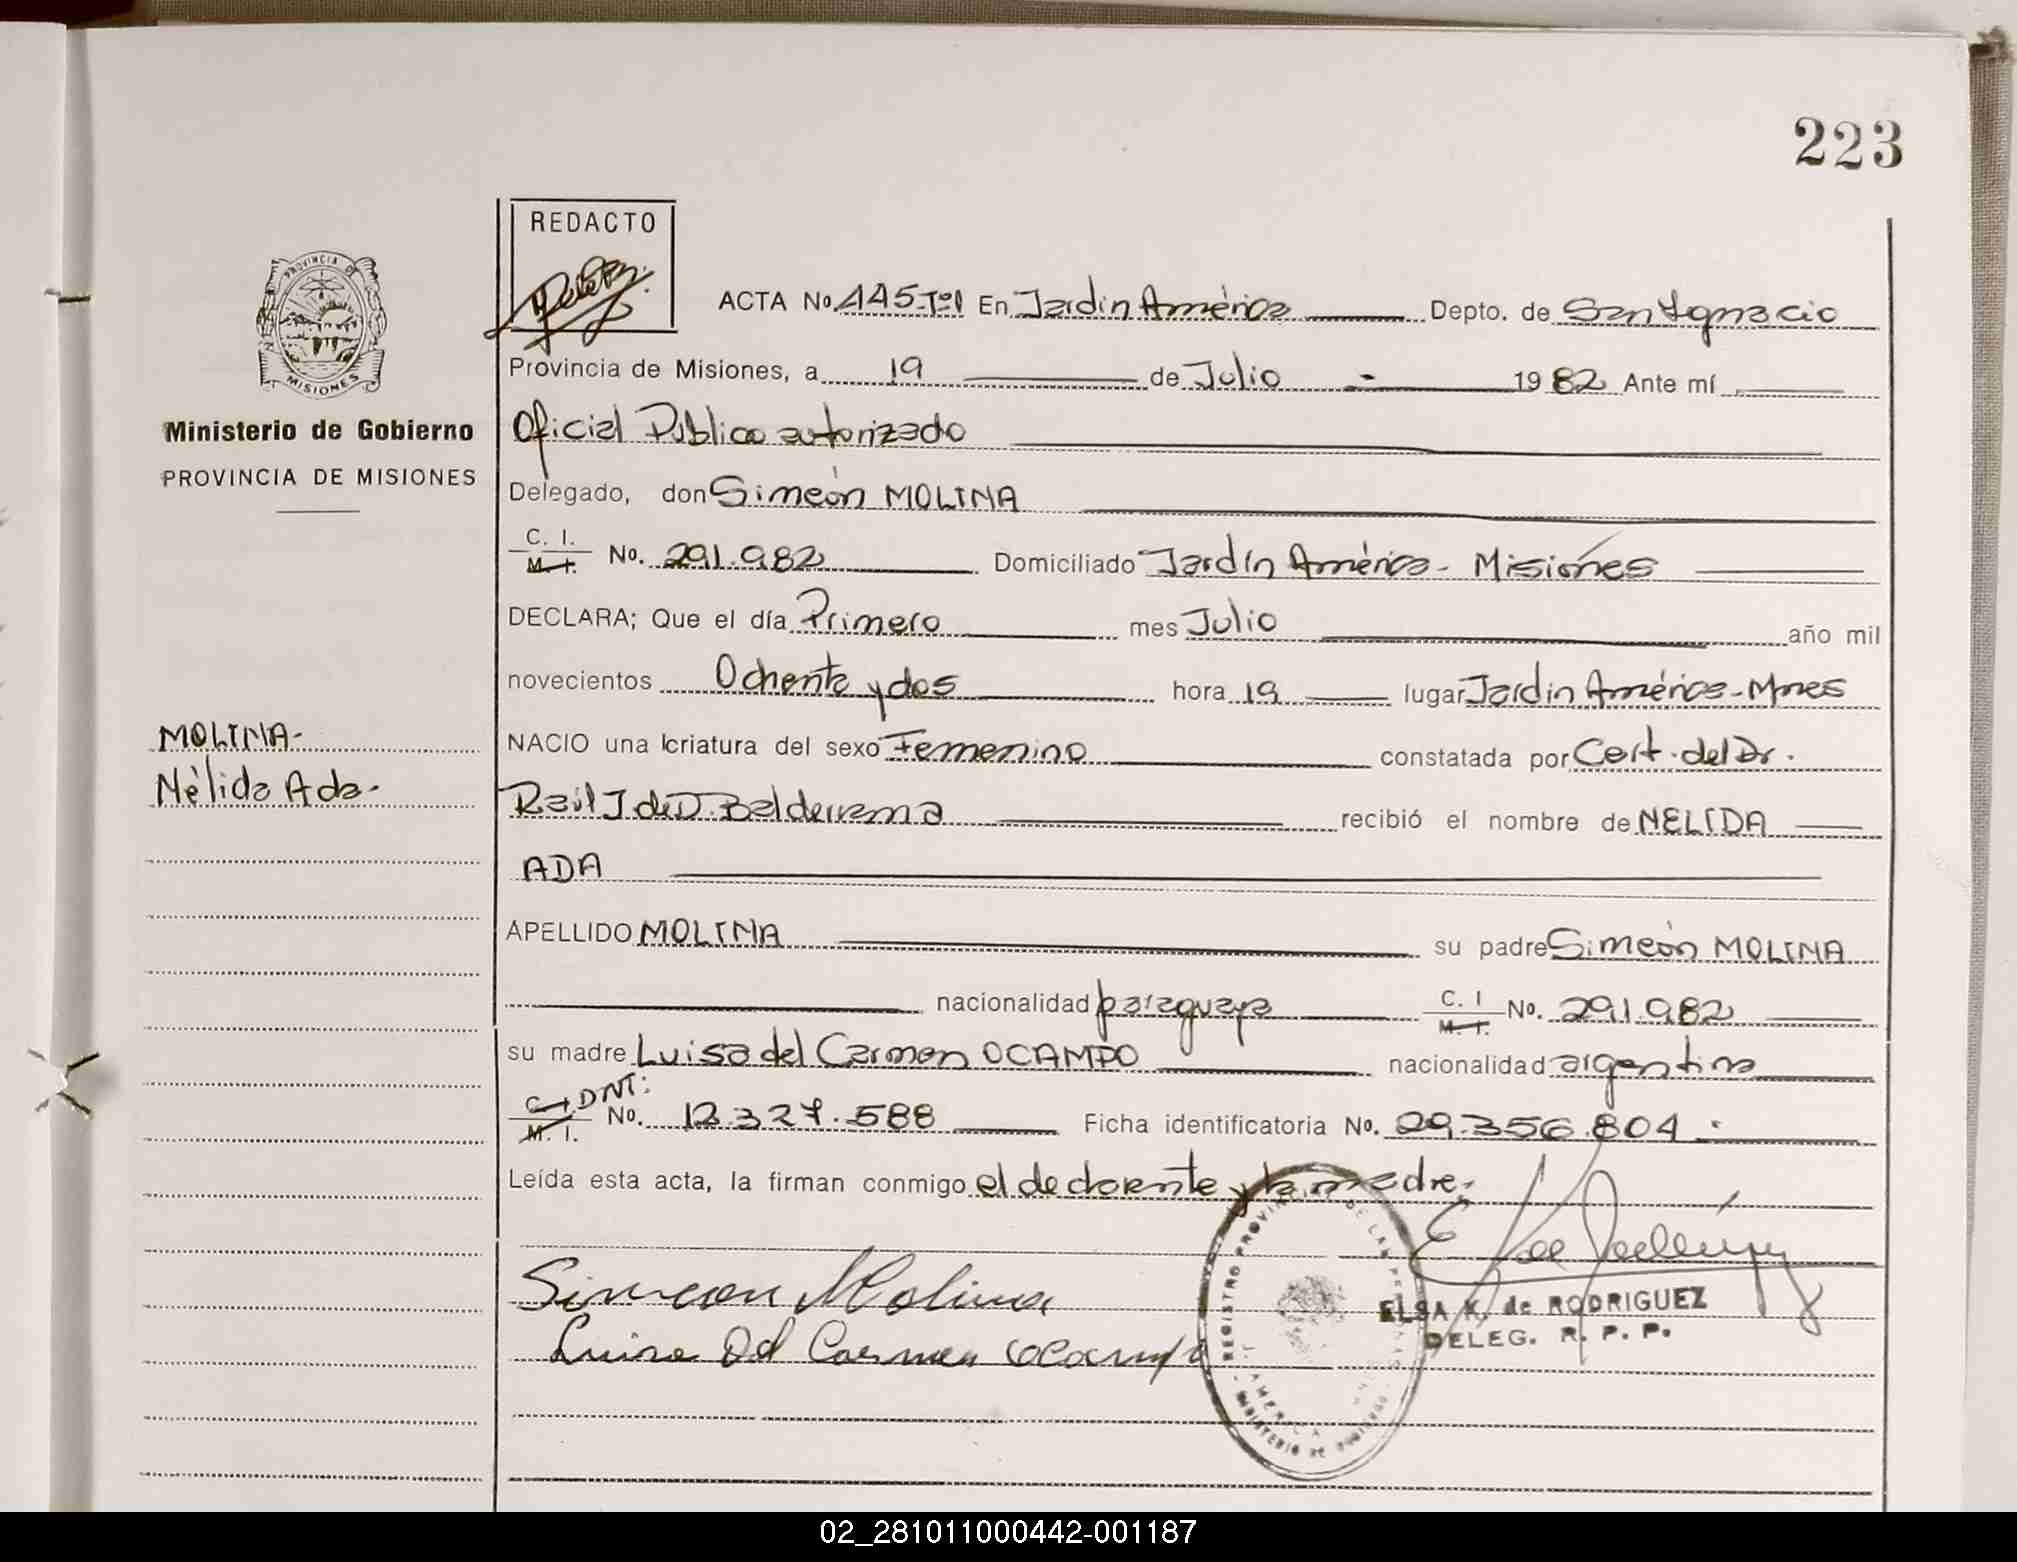 223
REDACTO
PROVINCIA DE
MISIONES
Ministerio de Gobierno
PROVINCIA DE MISIONES
MOLINA-
Nélida Ada-
ACTA No 445-Tº1 En Jardín América Depto. de San Ignacio
Provincia de Misiones, a 19 de Julio 1982 Ante mí
Oficial Público autorizado
Delegado, don Simeón MOLINA
C. I. M. I. No. 291.982 Domiciliado Jardín América - Misiones
DECLARA; Que el día Primero mes Julio año mil
novecientos Ochenta y dos hora 19 lugar Jardín América-Mnes
NACIO una criatura del sexo Femenino constatada por Cert. del Dr.
Raúl J de D. Balderrama recibió el nombre de NELIDA
ADA
APELLIDO MOLINA su padre Simeón MOLINA
nacionalidad paraguaya C. I M. I. No. 291.982
su madre Luisa del Carmen OCAMPO nacionalidad argentina
C. I. DNI: M. I. No. 12.327.588 Ficha identificatoria No. 29.356.804.
Leída esta acta, la firman conmigo el declarante y la madre.
Simeon Molina
Luisa Del Carmen Ocampo
ELSA K. de RODRIGUEZ
DELEG. R. P. P.
REGISTRO PROVINCIAL DE LAS PERSONAS
AMERICA
MINISTERIO DE GOBIERNO
02_281011000442-001187